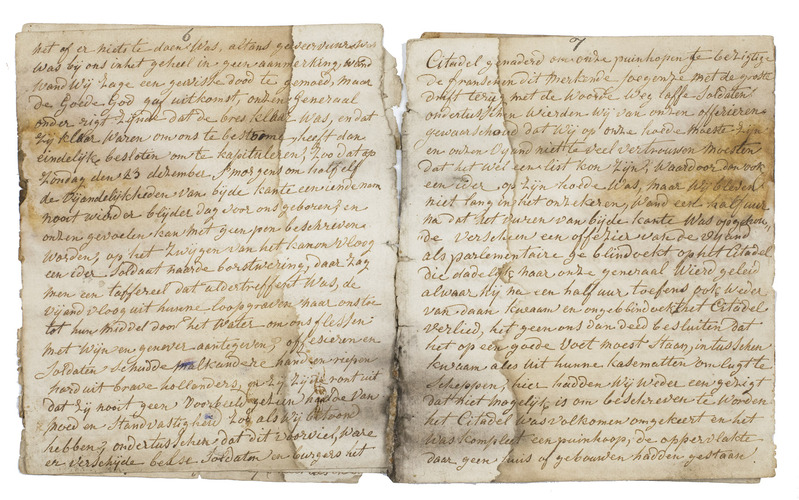 6
het of er niets te doen was, altans geweervuur was
was bij ons in het geheel in geen aanmerking, want
Want Wij Zage een gewisse dood te gemoed, maar
de Goede God gaf uitkomst, onzen Generaal
onder rigt Zijnde dat de bres klaar was, en dat
Zij klaar Waren om ons te bestoome, heeft dan
eindelijk besloten om te kapituleren, Zoo dat op
Zondag den 23 dezember, s'morgens om half elf
de Vijandelijkheden van bijde kante een iende nam
nooit wierder blijder dag voor ons geboren, en
onzen gevoelen kan met geen pen beschreven
Worden, op het Zwijgen van het kanon vloog
een ider Soldaat naar de borstwering, daar Zag
men een taffereel dat aldertreffent Was, de
vijand vloog uit hunne loopgraven naar ons toe
tot hun middel door het Water om ons flessen
met Wijn en genever aantegeven, offesieren en
Soldaten schudde malkandere handen riepen
hard uit brave hollanders, en Zij Zijde ront uit
dat Zij nooit geen Voorbeeld gezien hadde van
moed en Standvastigheid Zoo als Wij betoont
hebben, ondertusschen dat dit voorviel, Ware
er verschijde belse Soldaten en burgers het
7
Citadel genaderd om onze puinhopen te bezigtige
de franschen dit merkende joegen ze met de groste
drift terug met de Woorde Weg laffe Soldaten
ondertusschen Wierden Wij van onzen offezieren
gewaarschoud dat Wij op onze hoede moeste Zijn
en onzen Vijand niet te veel vertrouwen moesten
dat het Wel een list kon Zijn, Waardoor dan ook
een ider op Zijn hoede Was, maar Wij bleven
niet lang in het onzekeren, Wand een half uur
na dat het vuren van bijde kante Was opgehou
de verscheen een offezier van de vijand
als parlementaire ge blindoekt op het Citadel
die dadelijk naar onze generaal Wierd geleid
alwaar hij na een half uur toefens ook Weder
van daan kwaam en ongeblindoekt het Citadel
verlied, het geen ons dan deed besluiten dat
het op een goede voet moest staan, intusschen
kwaam alles uit hunne kasematten om lugt te
Scheppen, hier hadden Wij Weder een gezigt
dat niet mogelijk is om beschreven te Worden
het Citadel Was volkomen omgekeert en het
Was kompleet een puinhoop, de oppervlakte
daar geen huis of gebouwen hadden gestaan